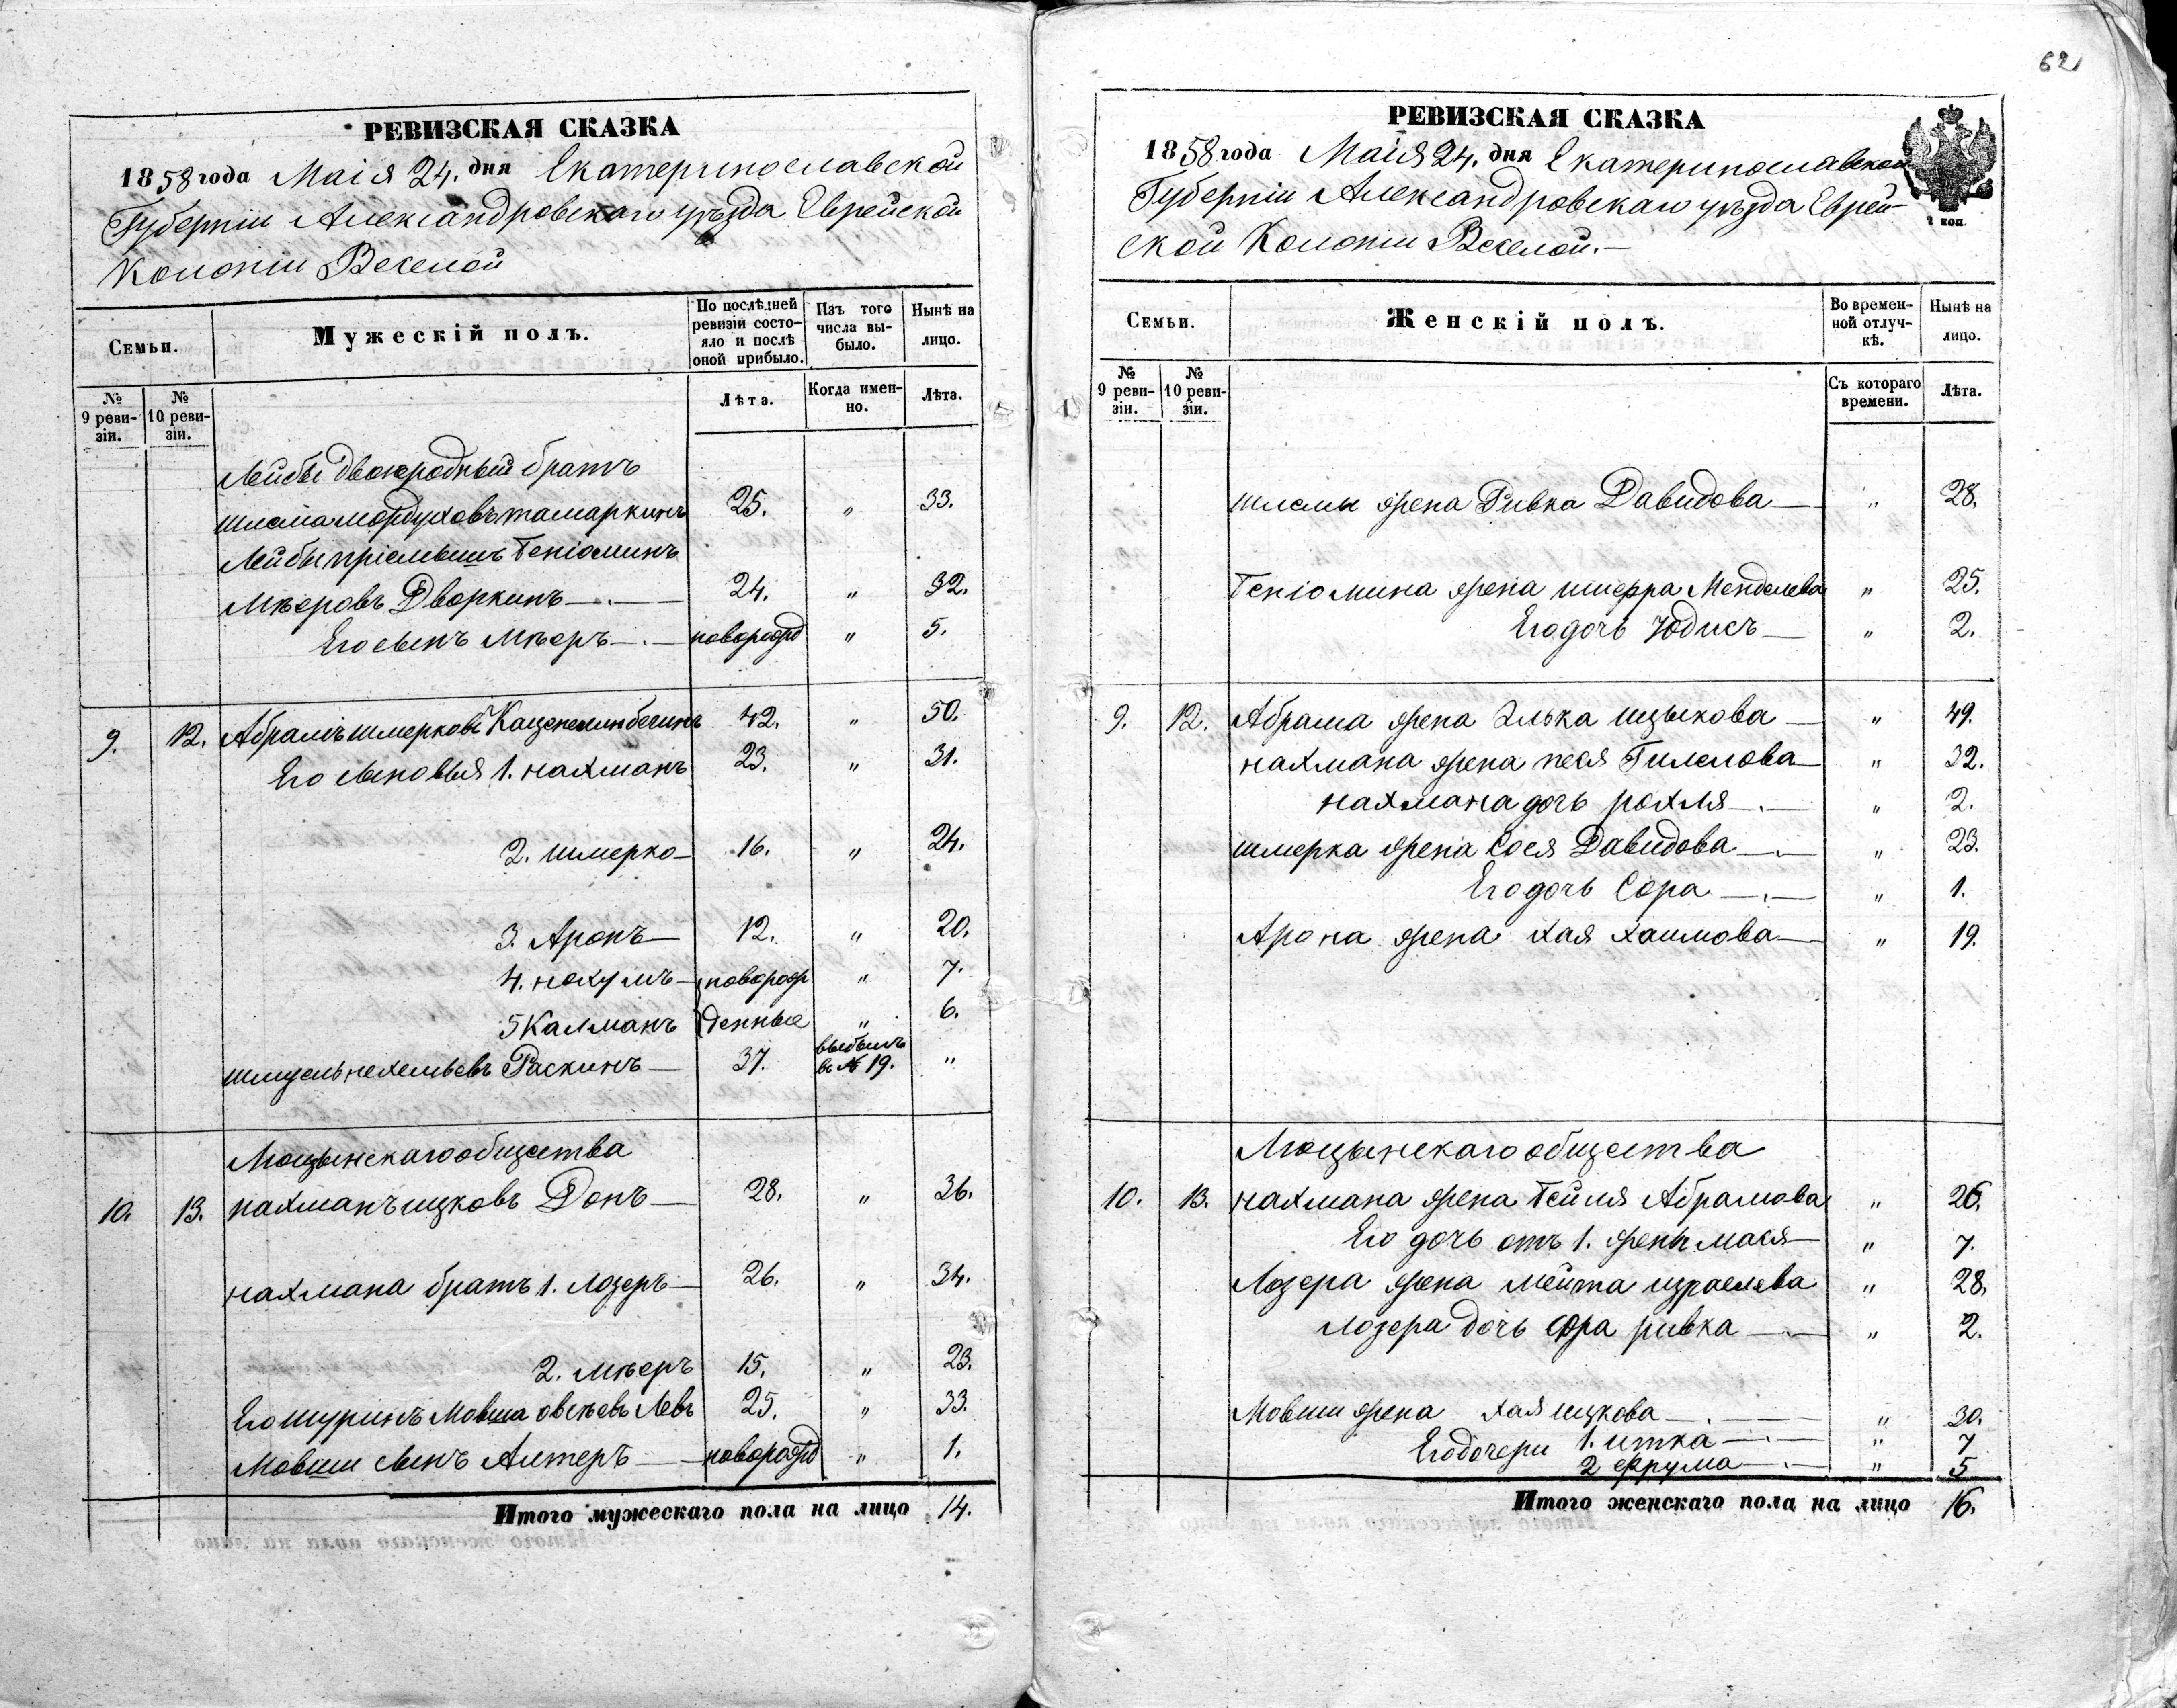 62
РЕВИЗСКАЯ СКАЗКА
1858 года Маія 24. дня Екатеринославской
Губерніи Александровскаго уѣзда Еврейской
Колоніи Веселой
Семьи.
Мужескій полъ.
По послѣдней ревизіи состояло и послѣ оной прибыло.
Изъ того числа выбыло.
Нынѣ на лицо.
№ 9 ревизіи.
№ 10 ревизіи.
Лѣта.
Когда именно.
Лѣта.
Лейбы двоюродный братъ
Шлема Мордуховъ Тамаркинъ 25. " 33.
Лейбы пріемышъ Беніоминъ
Мѣеровъ Дворкинъ 24. " 32.
Его сынъ Мѣеръ новорожд " 5.
9. 12. Абрамъ Шмерковъ 42. " 50.
Его сыновья 1. Нахманъ 23. " 31.
2. Шмерко 16. " 24.
3. Аронъ 12. " 20.
4. Нохумъ новорож " 7.
5 Калманъ денные " 6.
Шмуель Нехемьевъ Раскинъ 37. выбылъ в № 19. "
Люцынскаго общества
10. 13. Нахманъ Ицковъ Донъ 28. " 36.
Нахмана братъ 1. Лозеръ 26. " 34.
2. Мѣеръ 15. " 23.
Его шуринъ Мовша Овсѣевъ Левъ 25. " 33.
Мовши сынъ Алтеръ новорожд " 1.
Итого мужескаго пола на лицо 14.
РЕВИЗСКАЯ СКАЗКА
2 коп.
1858 года Маія 24. дня Екатеринославской
Губерніи Александровскаго уѣзда Еврей-
ской Колоніи Веселой.
Семьи.
Женскій полъ.
Во временной отлучкѣ.
Нынѣ на лицо.
№ 9 ревизіи.
№ 10 ревизіи.
Съ котораго времени.
Лѣта.
Шлемы жена Ривка Давидова " 28.
Беніомина жена Шифра Менделева " 25.
Его дочь Юдисъ " 2.
9. 12. Абрама жена Элька Ицыкова " 49.
Нахмана жена Песя Гилелова " 32.
Нахмана дочь Рохля " 2.
Шмерка жена Сося Давидова " 23.
Его дочь Сора " 1.
Арона жена Хая Хаимова " 19.
Люцынскаго общества
10. 13. Нахмана жена Бейля Абрамова " 26.
Его дочь отъ 1. жены Мася " 7.
Лозера жена Мейта Израелева " 28.
Лозера дочь Сора Ривка " 2.
Мовши жена Хая Ицкова " 30.
Его дочери 1. Итка " 7
2 Фрума " 5
Итого женскаго пола на лицо 16.